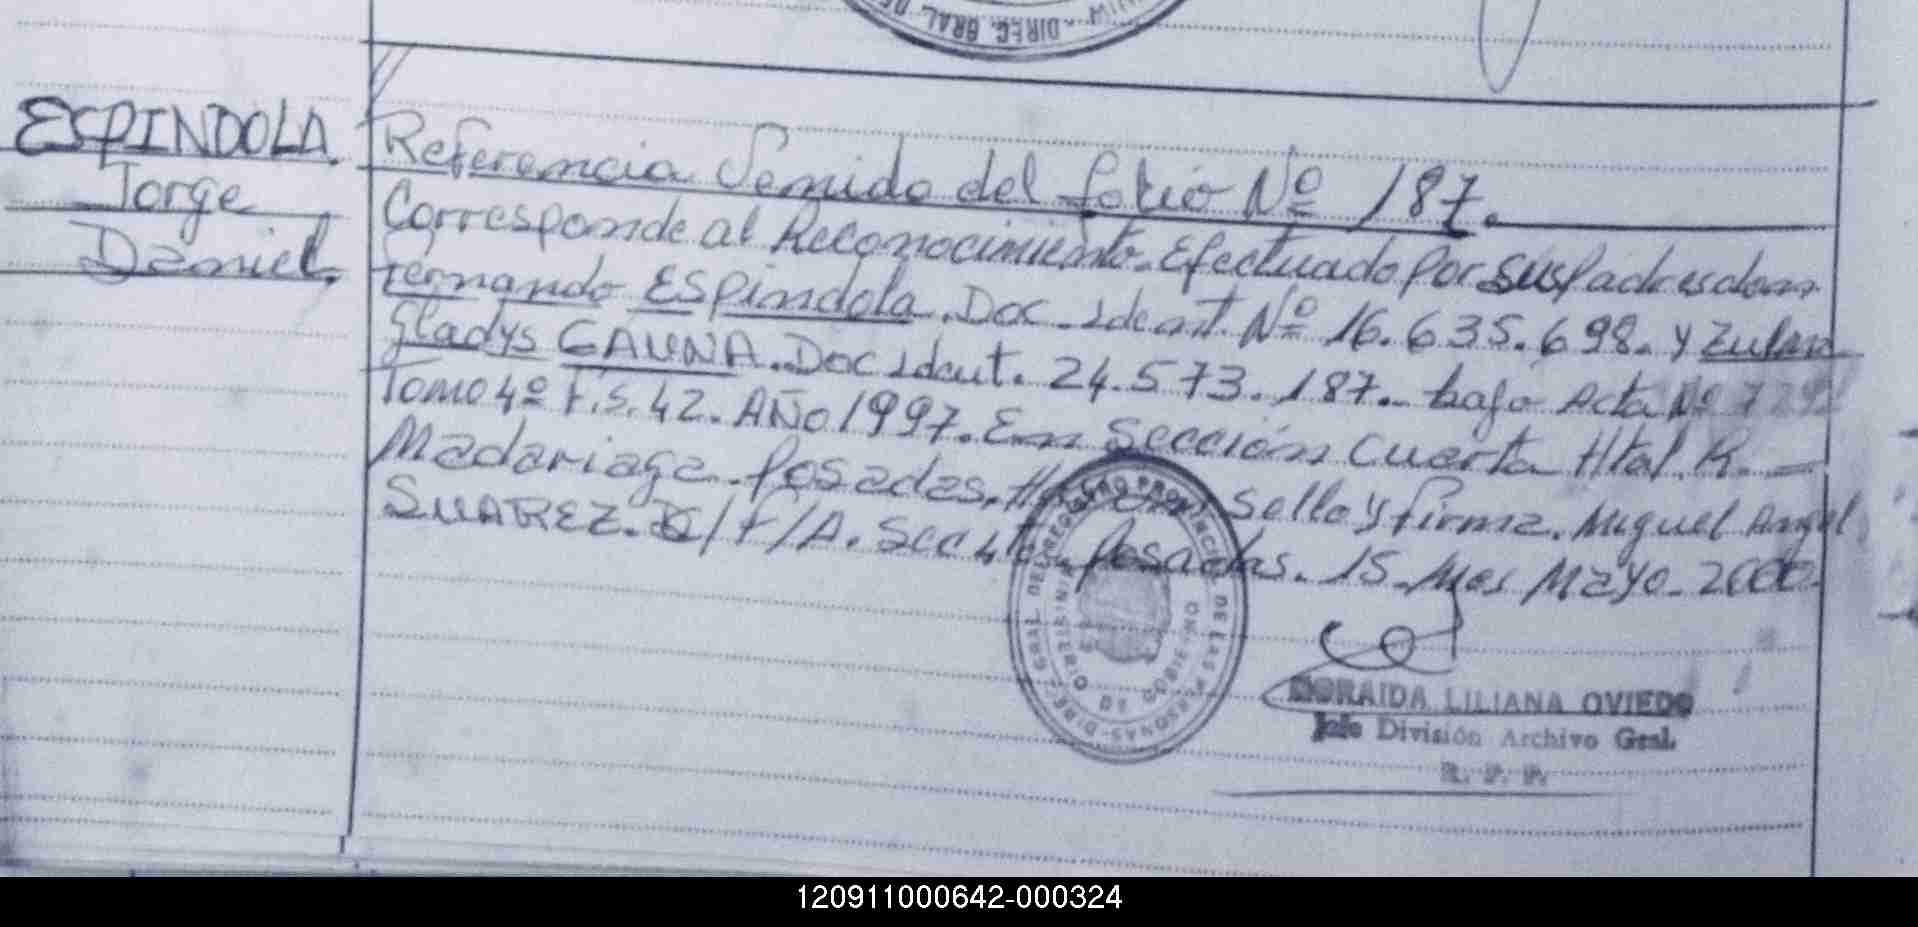 DIREC. GRAL. DE
ESPINDOLA.
Jorge
Daniel.
Referencia Venido del folio Nº 187.
Corresponde al Reconocimiento Efectuado Por sus Padres don
Fernando ESPindola. Doc. Ident. Nº 16.635.698. y Zulma
Gladys GAUNA. Doc Ident. 24.573.187. bajo Acta Nº
Tomo 4º F.S. 42. AÑO 1997. En Sección Cuarta Htal. R.
Madariaga. Posadas. sello y firma. Miguel Angel
SUAREZ. /F/A. Secc 4ta. Posadas. 15. Mes Mayo. 2000.
DIREC. GRAL DEL REGISTRO PROVINCIAL DE LAS PERSONAS
MINISTERIO DE GOBIERNO
ZORAIDA LILIANA OVIEDO
Jefe División Archivo Gral.
R. P. P.
120911000642-000324